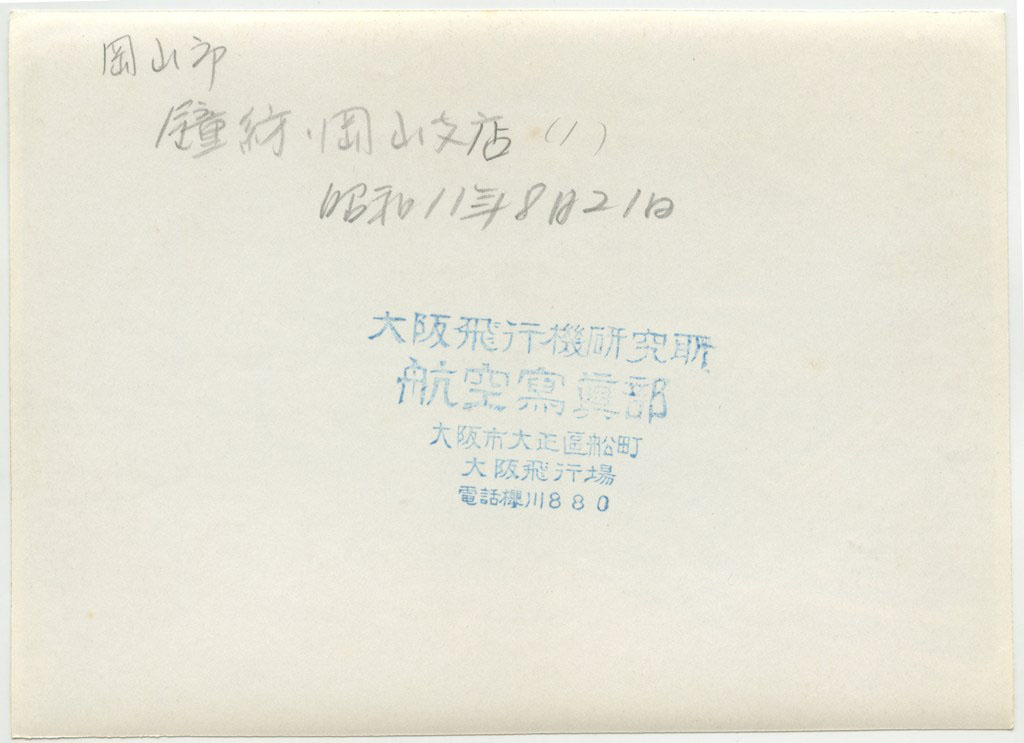 岡山卩
鐘紡・岡山支店(1)
昭和11年8月21日
大阪飛行機研究所
航空寫眞部
大阪市大正區船町
大阪飛行場
電話櫻川880